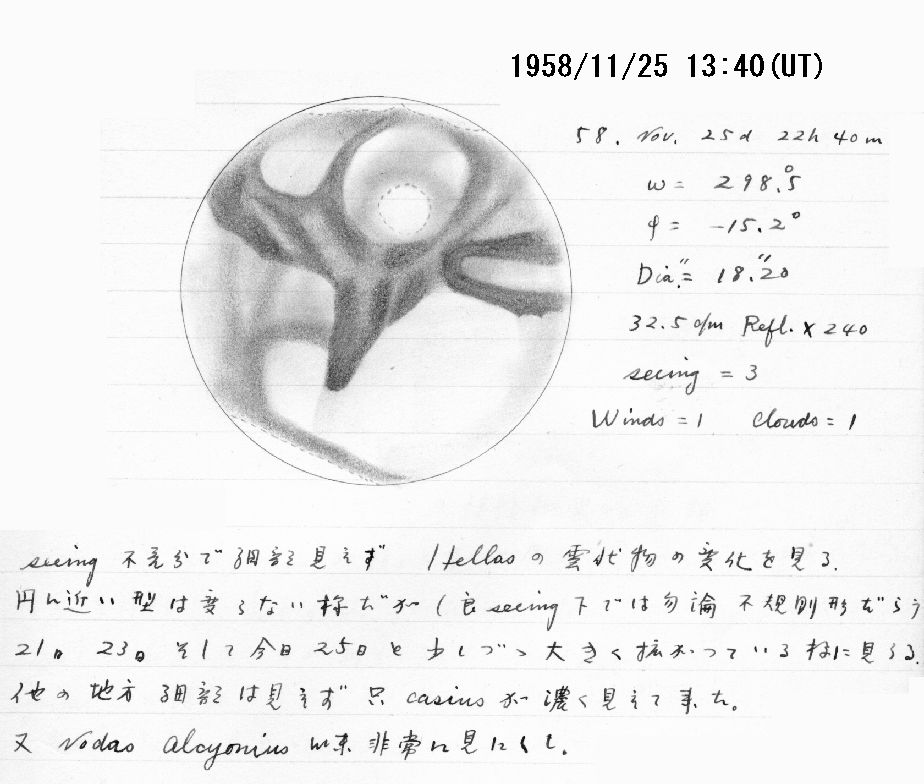 1958/11/25 13:40(UT)
58. Nov. 25d 22h 40m
ω = 298.°5
φ = -15.2°
Dia. = 18.″20
32.5 c/m Refl. × 240
seeing = 3
Winds = 1 Clouds = 1
seeing 不充分で細部見えず Hellasの雲状物の変化を見る.
円に近い型は変らない様だが(良seeing下では勿論 不規則形だらう
21日 23日 そして今日25日と少しづつ大きく拡がっている様に見える.
他の地方 細部は見えず 只 casiusが濃く見えて来た。
又 Nodas alcyonius 非常に見にくし.